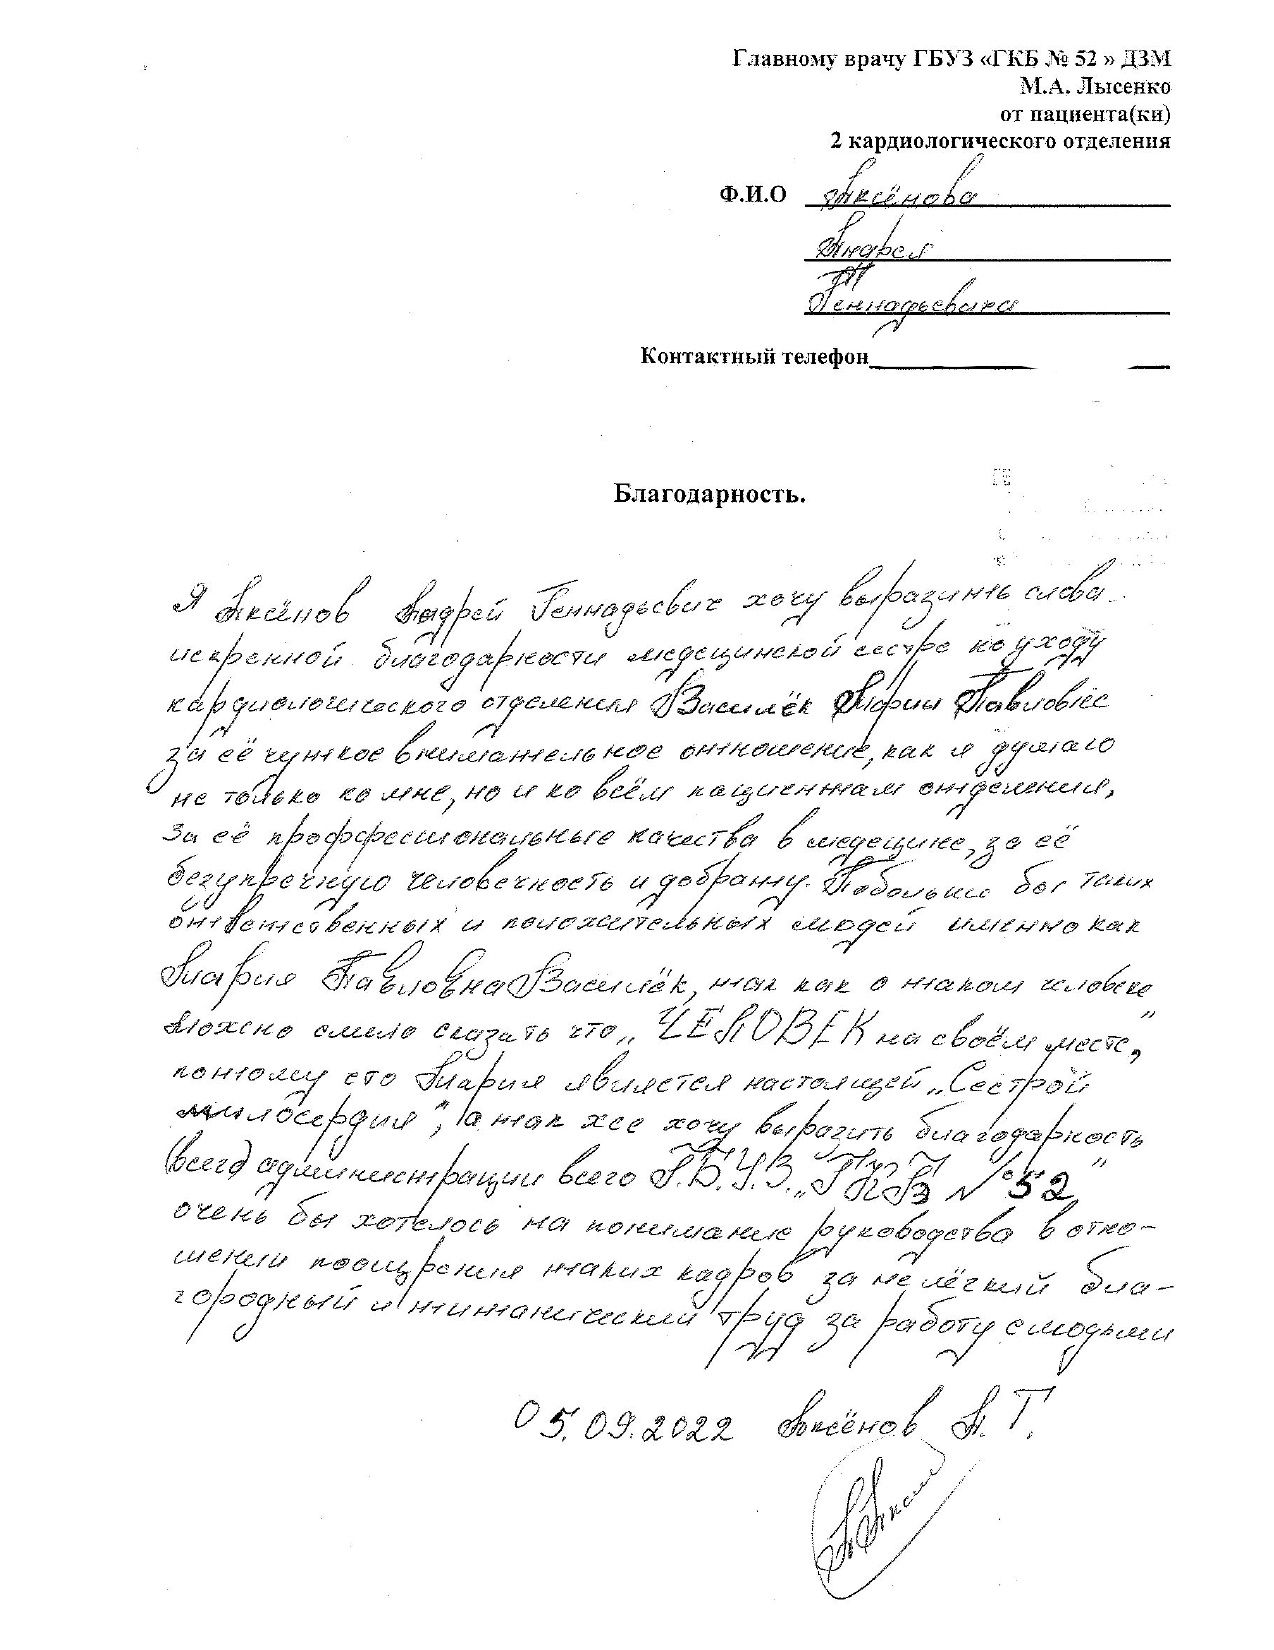 Главному врачу ГБУЗ «ГКБ № 52 » ДЗМ
М.А. Лысенко
от пациента(ки)
2 кардиологического отделения
Ф.И.О Аксёнова
Андрея
Геннадьевича
Контактный телефон
Благодарность.
Я Аксёнов Андрей Геннадьевич хочу выразить слова
искренной благодарности медецинской сестре по уходу
кардиологического отделения Василёк Марии Павловне
за её чуткое внимательное отношение, как я думаю
не только ко мне, но и ко всем пациентам отделения,
за её профессиональные качества в медецине, за её
безупречную человечность и доброту. Побольше бы таких
ответственных и положительных людей именно как
Мария Павловна Василёк, так как о таком человеке
можно смело сказать что „ЧЕЛОВЕК на своём месте”,
потому что Мария является настоящей „Сестрой
милосердия”, а так же хочу выразить благодарность
(всей) администрации всего Г.Б.У.З. „ГКБ № 52”
очень бы хотелось на понимание руководства в отно-
шении поощрения таких кадров за не лёгкий бла-
городный и титанический труд за работу с людьми
05.09.2022 Аксёнов А.Г.